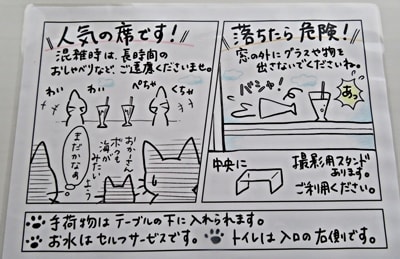 人気の席です!
混雑時は、長時間の
おしゃべりなど、ご遠慮くださいませ。
わい わい ぺちゃ くちゃ
まだかなぁ
おかーさん
ボクも
海が
みたいよう
落ちたら危険!
窓の外にグラスや物を
出さないでくださいね。
バシャ!
あっ
中央に
撮影用スタンド
あります。
ご利用ください。
手荷物はテーブルの下に入れられます。
お水はセルフサービスです。 トイレは入口の右側です。